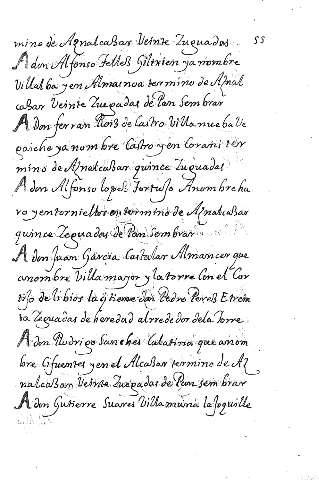 55
mino de Aznalcasar Veinte Zuguadas.
A don Alfonso Tellez Gilerien ya nombre
Villalba yen Almainoa termino de Aznal
casar Veinte Zuguadas de Pan Sembrar
A don ferran Ruiz de Castro Villanueba Ve
ya nombre Castro yen Corani ter
mino de Aznalcasar quince Zuguadas
A don Alfonso lopes Tortuso Anombre ha
ro yen en termino de Aznalcasar
quince Zeguadas de Pan Sembrar
A don Juan Garcia Castalar Almancer que
anombre Villamayor y la torre Con el Cor
tijo de Libios la qtiene don Pedro Perez E trein
ta Zeguadas de heredad alrrededor dela Torre
A don Rudrigo Sanches Calatina que anom
bre Cifuentes yen el Alcasar termino de Az
nalcasar Veinte Zuguadas de Pan Sembrar
A don Gutierre Suares Villamunia la Joquille